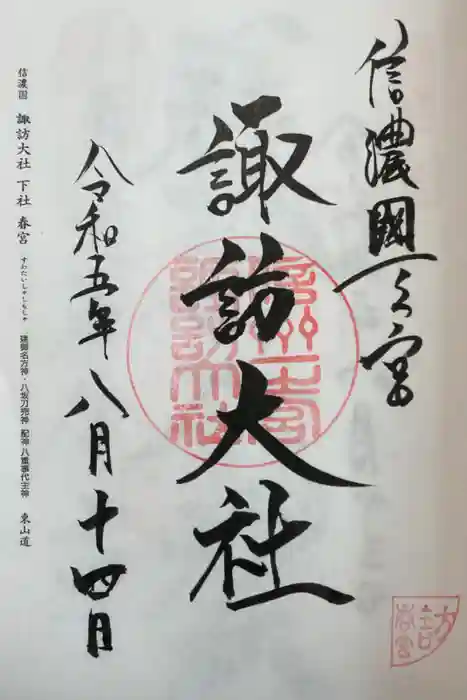 信濃國一之宮
諏訪大社
令和五年八月十四日
信濃国 諏訪大社 下社 春宮 すわたいしゃしもしゃ 建御名方神・八坂刀売神 配神 八重事代主神 東山道
信州一之宮
諏訪大社
諏訪
春宮